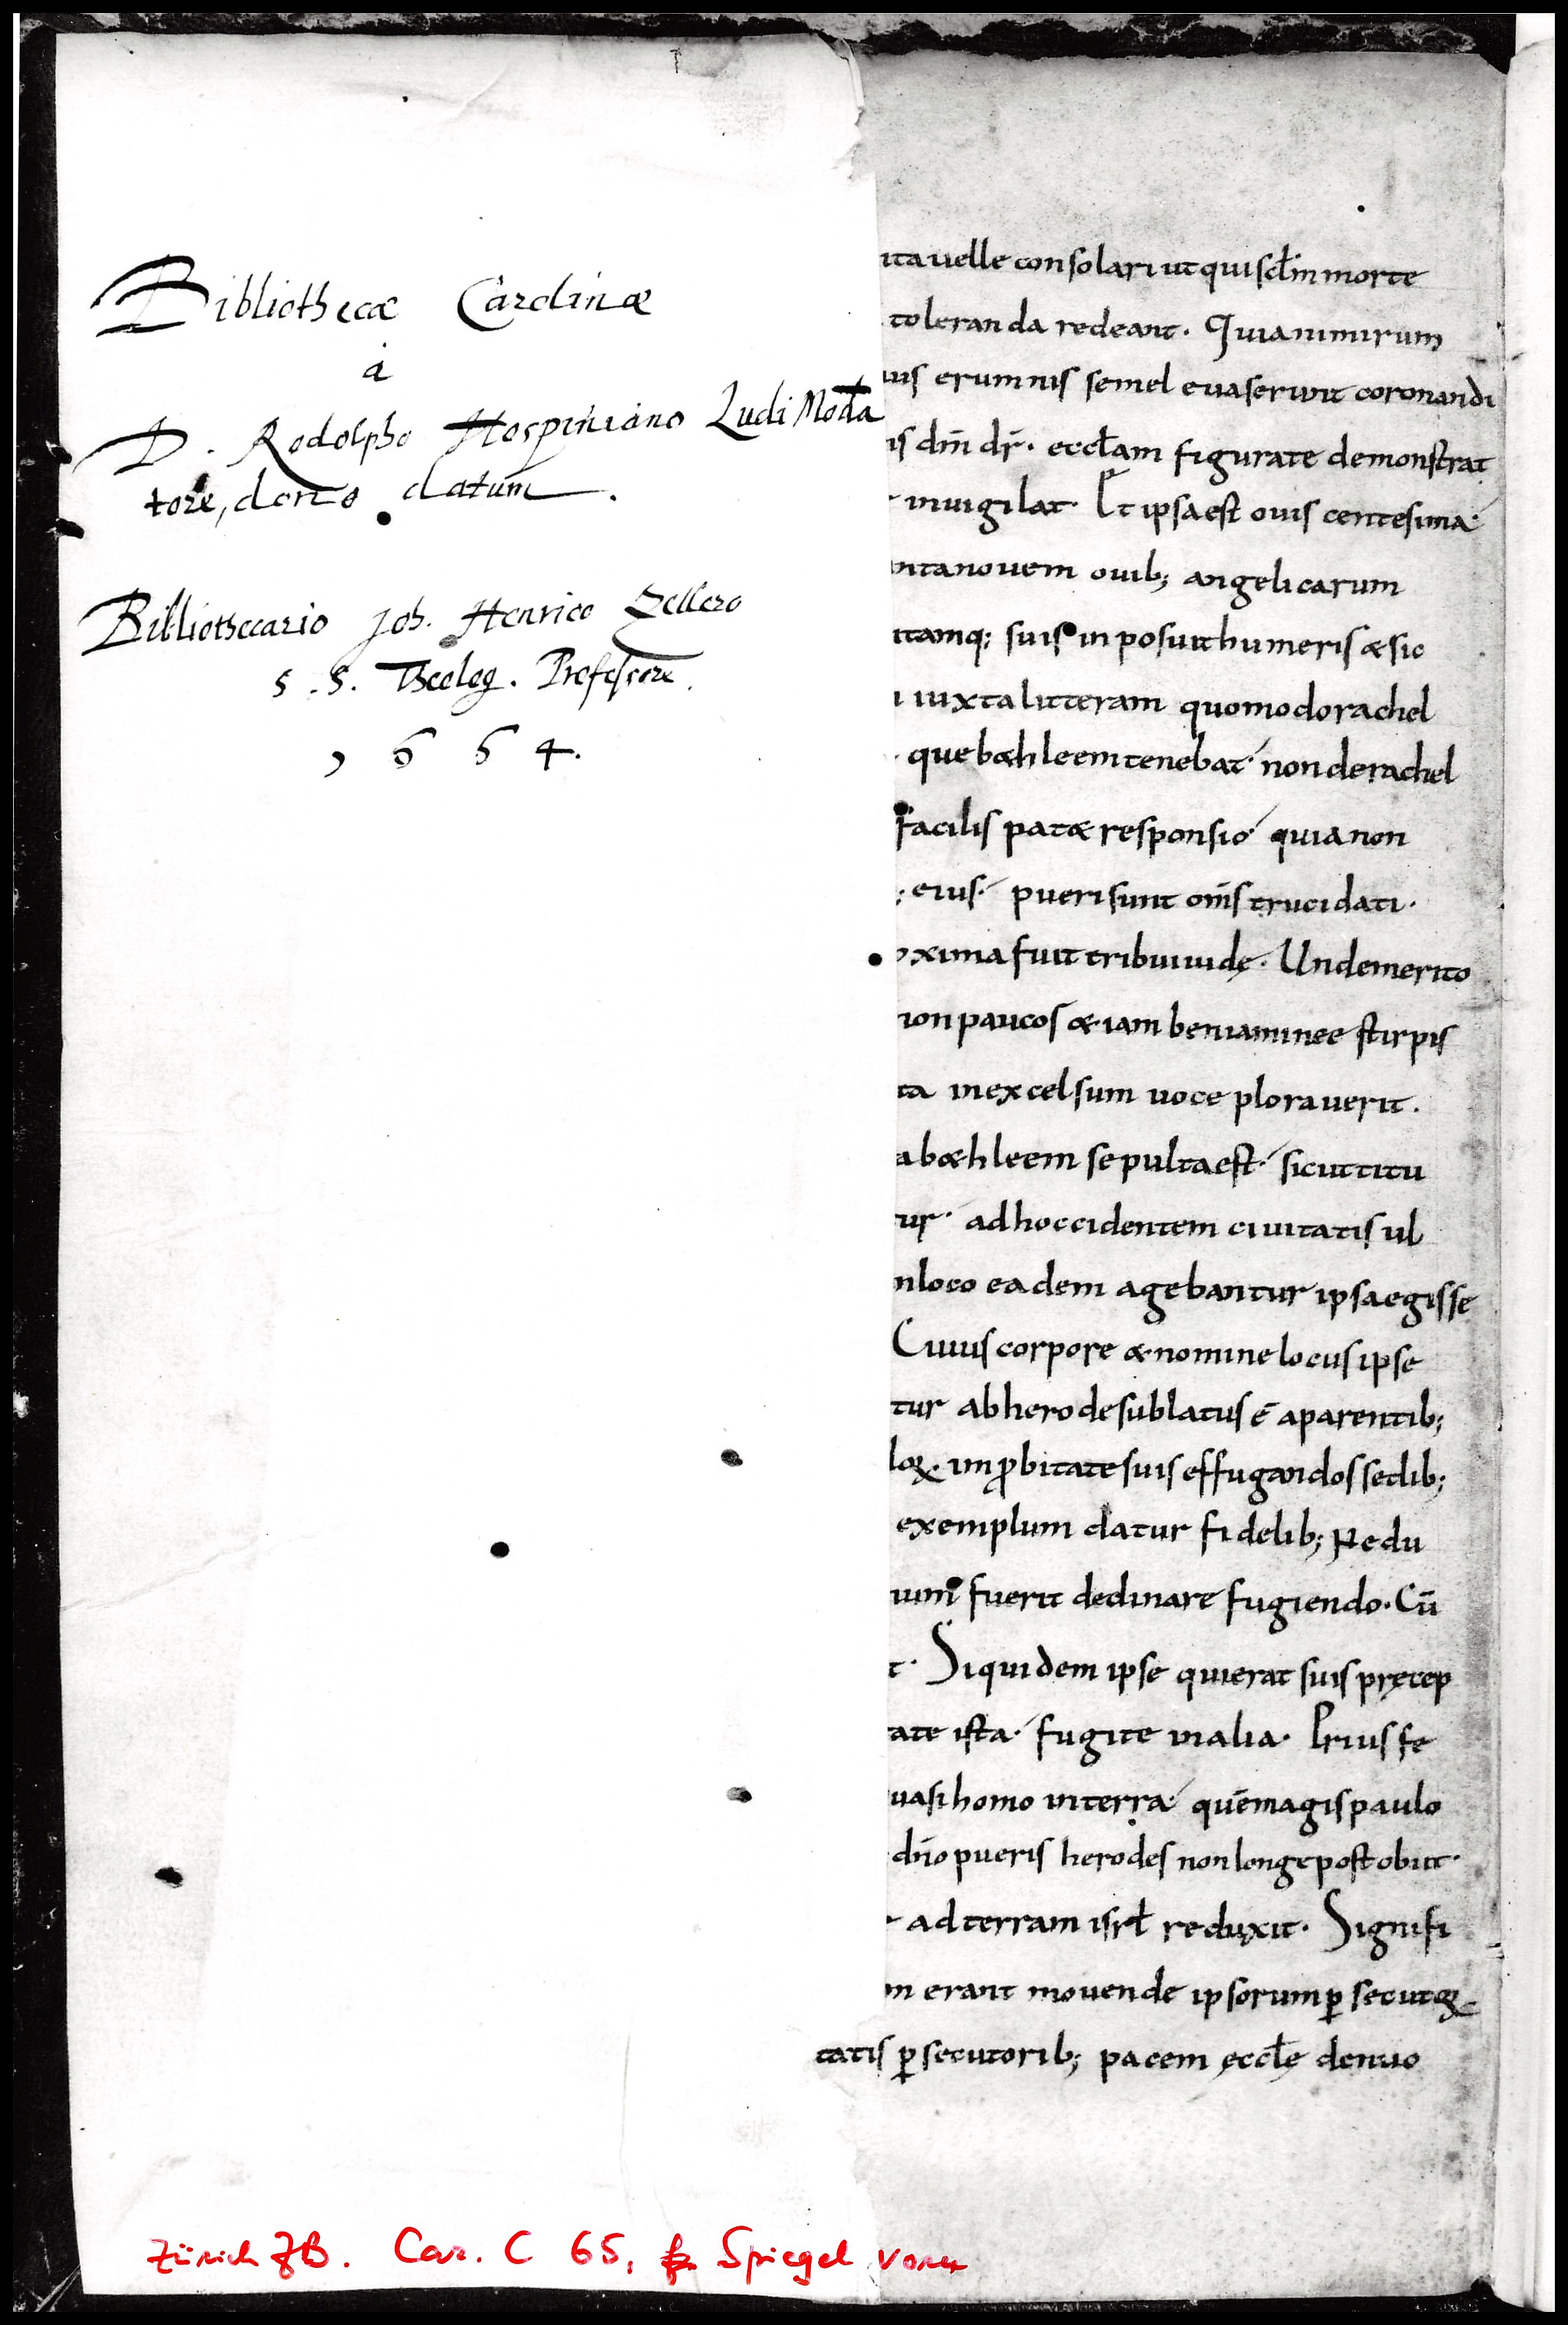 Bibliothecæ Carolinæ
à
D. Rodolpho Hospiniano Ludi Moda
tore, dono datum.
Bibliothecario Joh. Henrico Zellero
S. S. Theolog. Professore.
1664.
ita uelle consolari ut qui scłm morte
toleranda redeant. Quia nimirum
uis erumnis semel euaserunt coronandi
is dm̄ dr̄. eccłam figurate demonstrat
inuigilat. Et ipsa est ouis centesima
ntanouem ouib; angelicarum
itamq; suis in posuit humeris & sic
iuxta litteram quomodo rachel
que b&hleem tenebat. non de rachel
facilis pat& responsio quia non
; eius. pueri sunt om̄s trucidati.
oxima fuit tribui iudę. Unde merito
non paucos &iam beniaminee stirpis
ta in excelsum uoce plorauerit.
a b&hleem sepulta est. sicut titu
tur. ad hoccidentem ciuitatis ul
n loco eadem agebantur ipsa egisse
Cuius corpore & nomine locus ipse
tur ab herode sublatus ē a parentib;
improbitate suis effugandos sedib;
exemplum datur fidelib; Ne du
fuerit declinare fugiendo. Cū
t. Siquidem ipse qui erat suis precep
ate ista. fugite in alia. Prius fe
uasi homo in terra quēmagis paulo
dn̄o pueris herodes non longe post obiit.
ad terram isrł reduxit. Signifi
m erant mouende ipsorum ꝑsecutoꝝ
tatis ꝑsecutorib; pacem ęccłę denuo
Zürich ZB. Car. C 65, Spiegel vorn